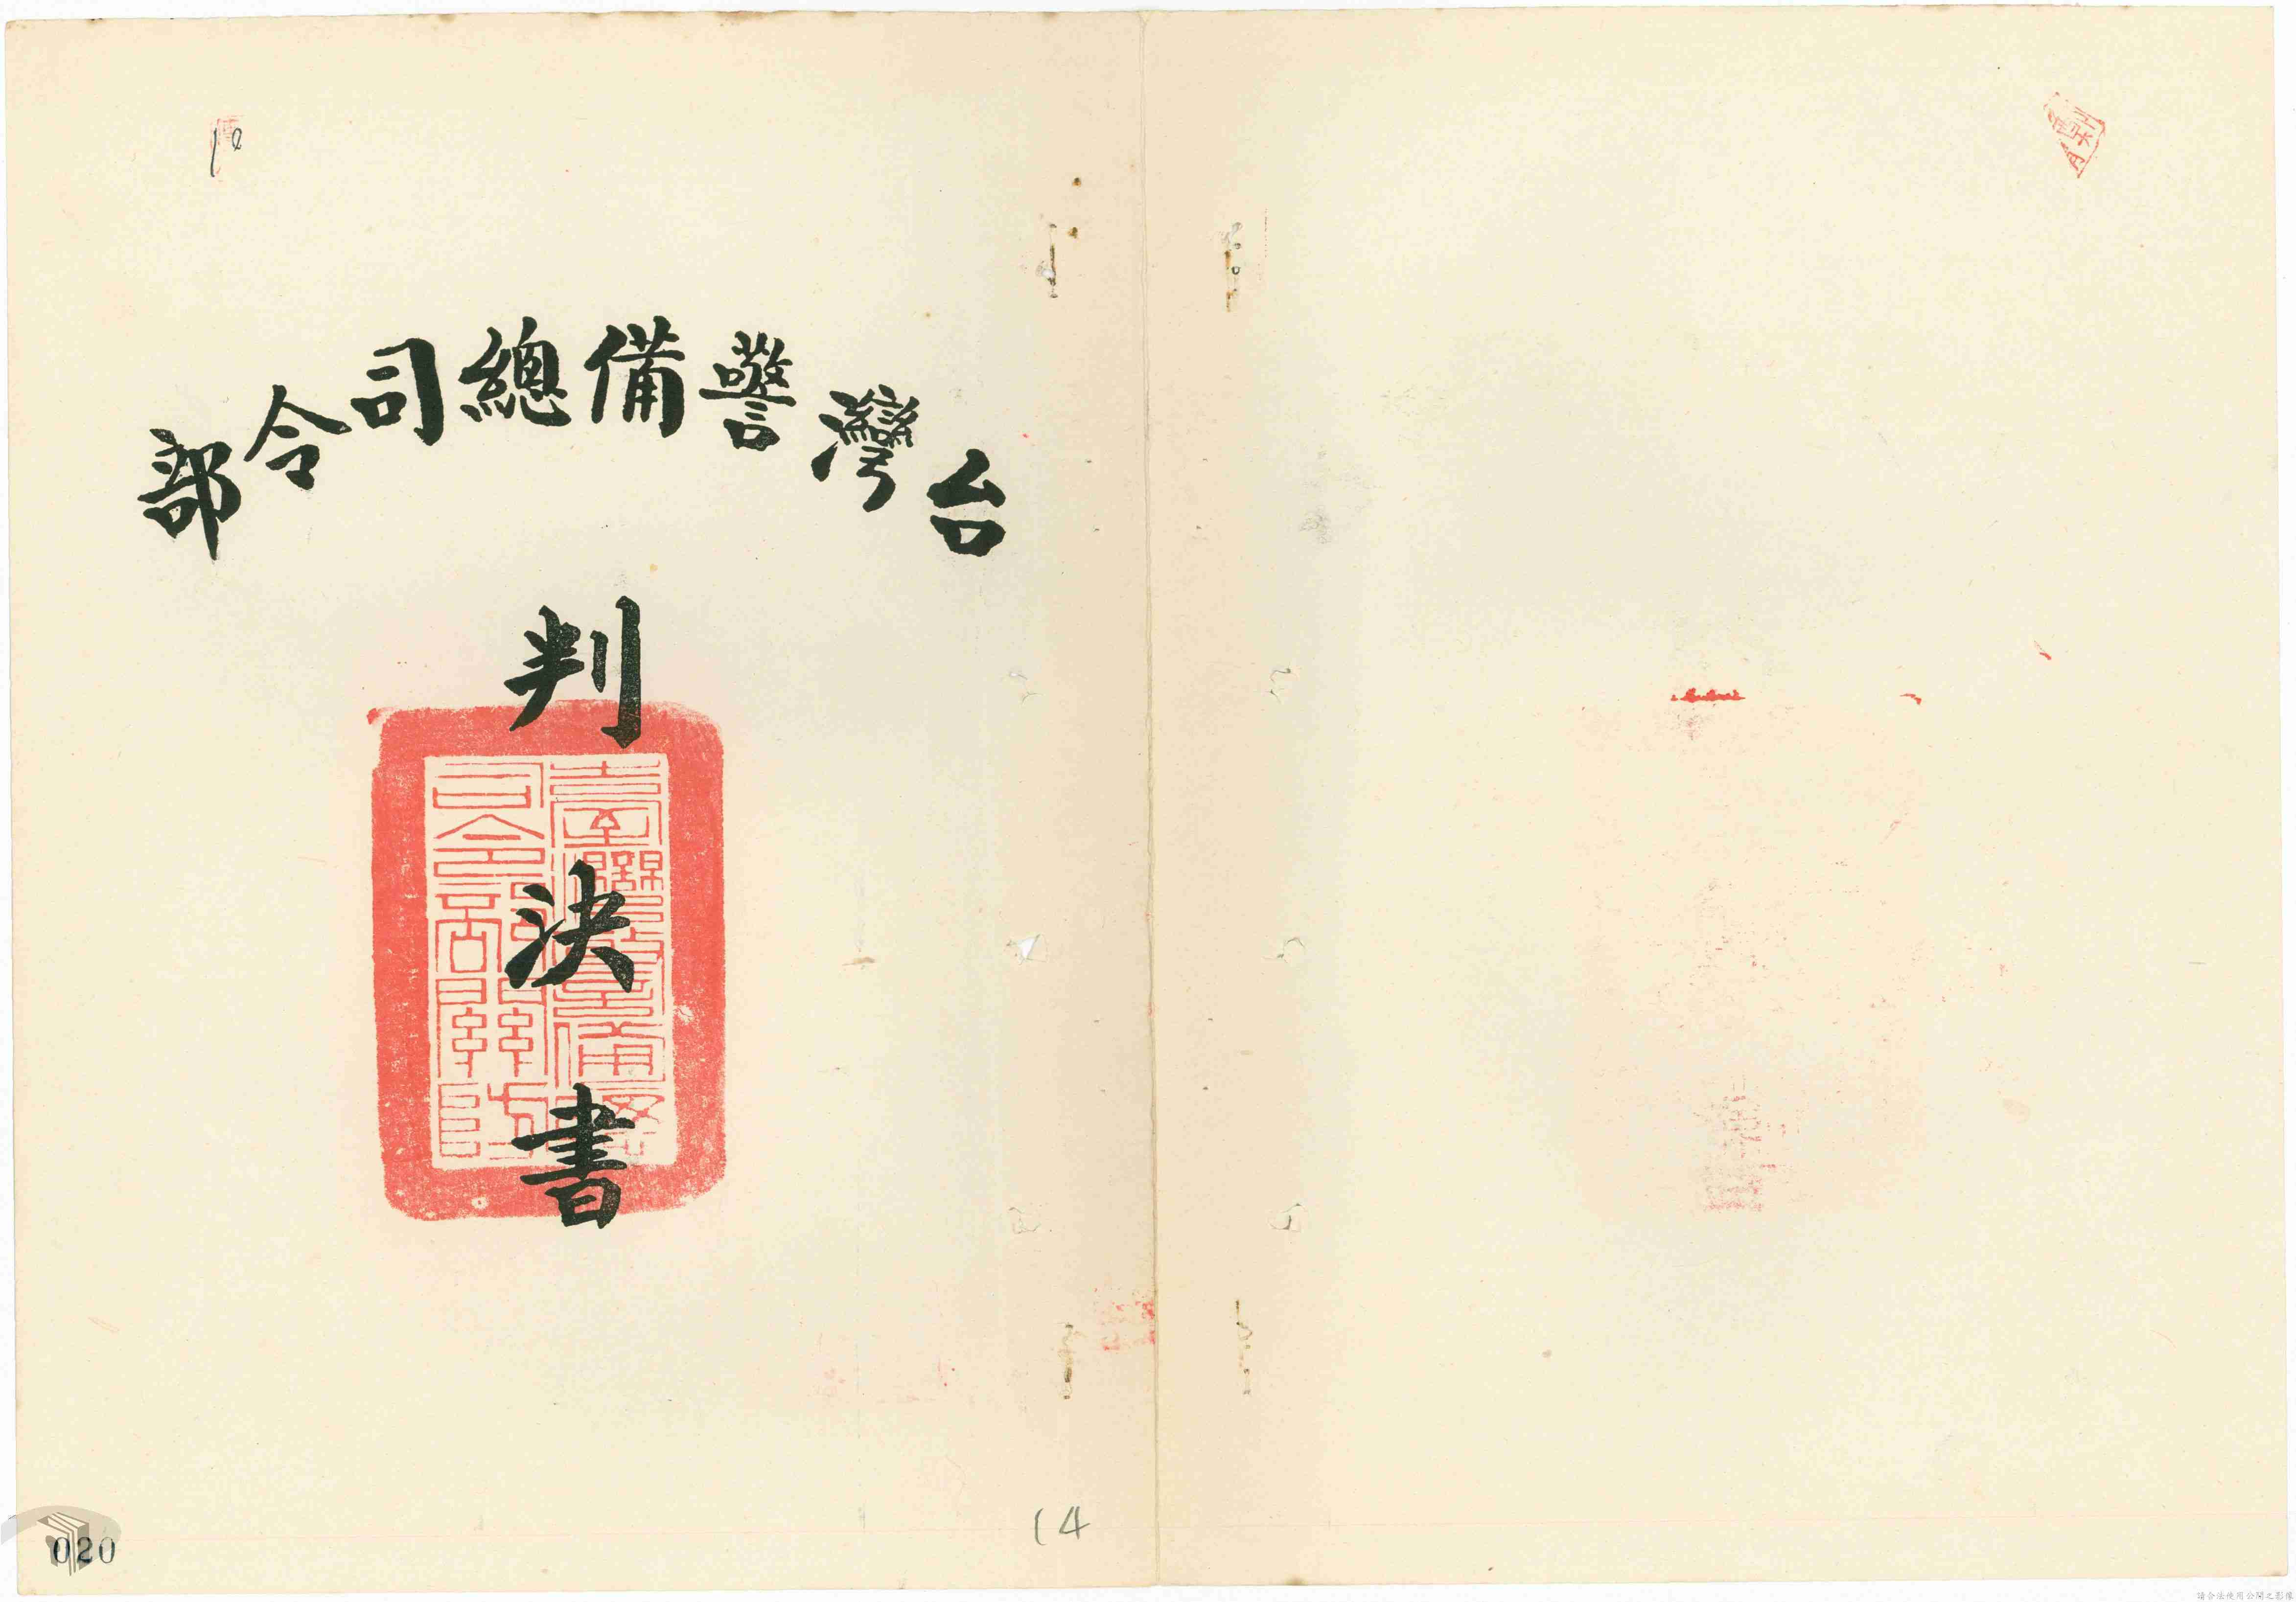 台灣警備總司令部
判決書
臺灣警備總
司令部關防
10
14
020
請合法使用公開之影像